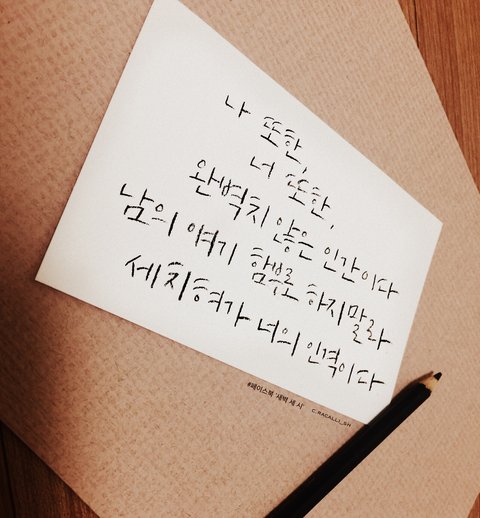 나 또한,
너 또한,
완벽치 않은 인간이다
남의 얘기 함부로 하지말라
세치혀가 너의 인격이다
#페이스북 '새벽 세 시' C.RACALLI_SH